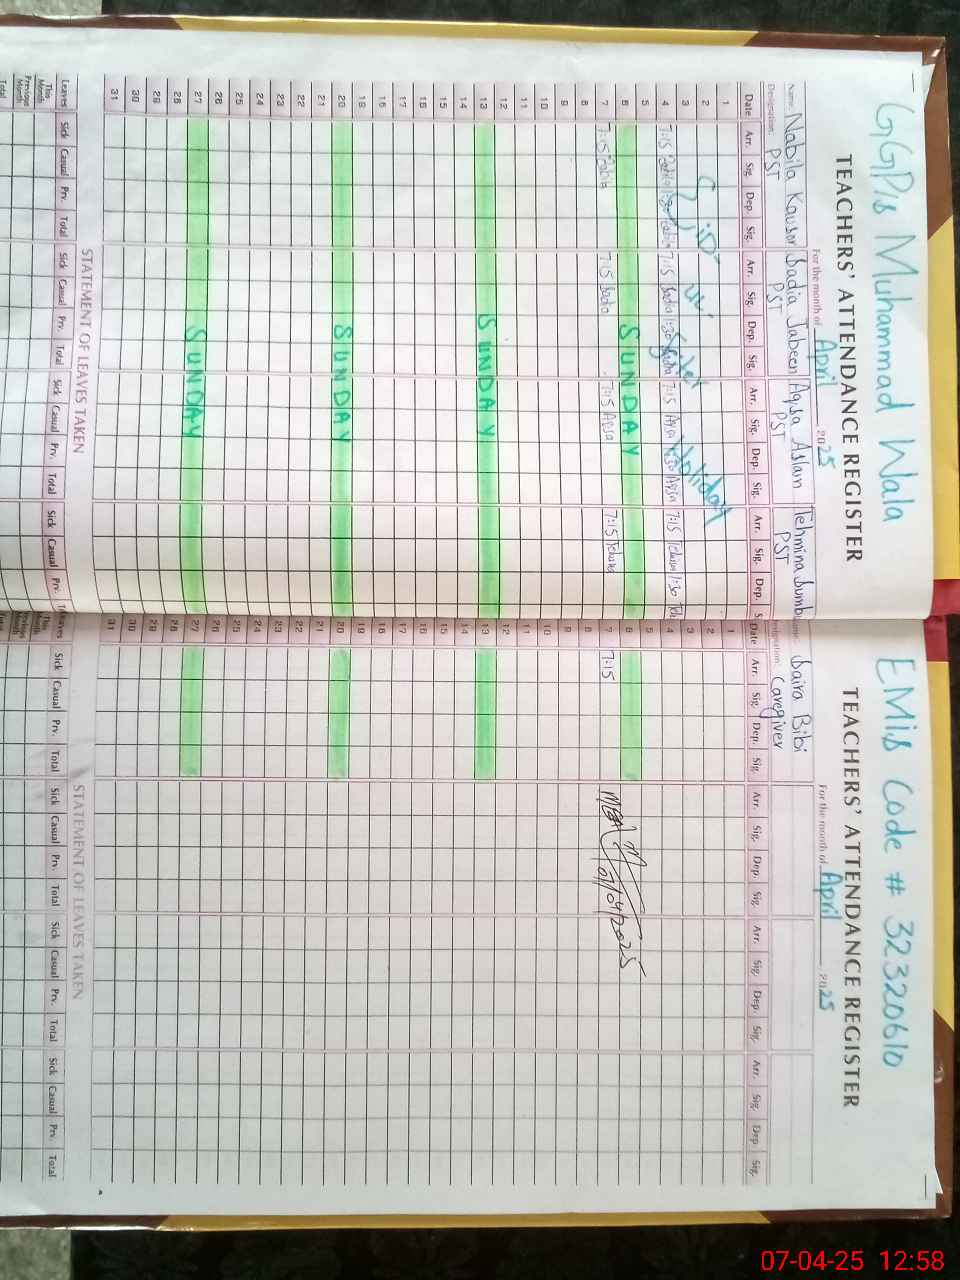 GGPs Muhammad Wala
TEACHERS' ATTENDANCE REGISTER
For the month of April 2025
Name: Nabila Kausar Sadia Jabeen Aqsa Aslam Tehmina Sumb
Designation: PST PST PST PST
Date Arr. Sig. Dep. Sig. Arr. Sig. Dep. Sig. Arr. Sig. Dep. Sig. Arr. Sig. Dep. S
1
2
3
Holiday
4 7:15 1:30 7:15 Sadia 1:30 Sadia 7:15 Aqsa 1:30 Aqsa 7:15 1:30
5
6 SUNDAY
7 7:15 7:15 Sadia 7:15 Aqsa 7:15
8
9
10
11
12
13 SUNDAY
14
15
16
17
18
19
20 SUNDAY
21
22
23
24
25
26
27 SUNDAY
28
29
30
31
STATEMENT OF LEAVES TAKEN
Leaves Sick Casual Prv. Total Sick Casual Prv. Total Sick Casual Prv. Total Sick Casual Prv.
This Month
Previous Month
Total
EMis Code # 32320610
TEACHERS' ATTENDANCE REGISTER
For the month of April 2025
Saira Bibi
Caregiver
Date Arr. Sig. Dep. Sig. Arr. Sig. Dep. Sig. Arr. Sig. Dep. Sig. Arr. Sig. Dep Sig.
1
2
3
4
5
6
7 7:15
07/04/2025
8
9
10
11
12
13
14
15
16
17
18
19
20
21
22
23
24
25
26
27
28
29
30
31
STATEMENT OF LEAVES TAKEN
Leaves Sick Casual Prv. Total Sick Casual Prv. Total Sick Casual Prv. Total Sick Casual Prv. Total
This Month
Previous Month
07-04-25 12:58